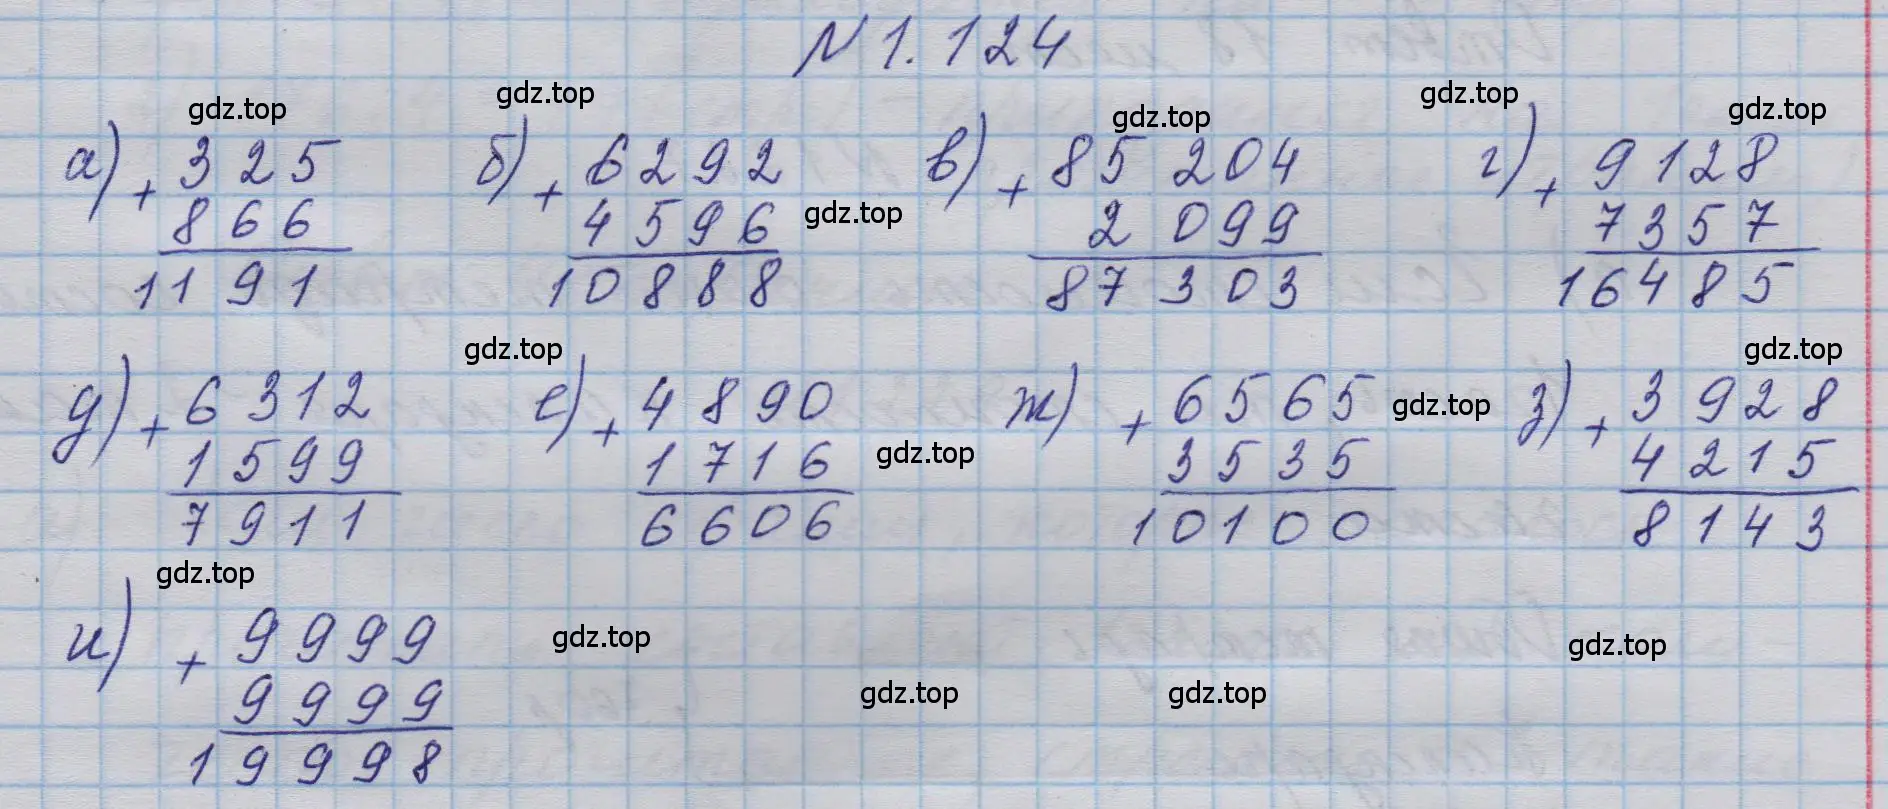 № 1.124
gdz.top gdz.top gdz.top gdz.top gdz.top
а) + 325 б) + 6292 в) + 85 204 г) + 9128
866 4596 gdz.top 2 099 7357
1191 10888 87 303 16485
gdz.top gdz.top
д) + 6312 е) + 4890 ж) + 6565 gdz.top з) + 3928
1599 1716 gdz.top 3535 4215
7911 6606 10100 8143
gdz.top
и) + 9999 gdz.top gdz.top
9999 gdz.top gdz.top
19998